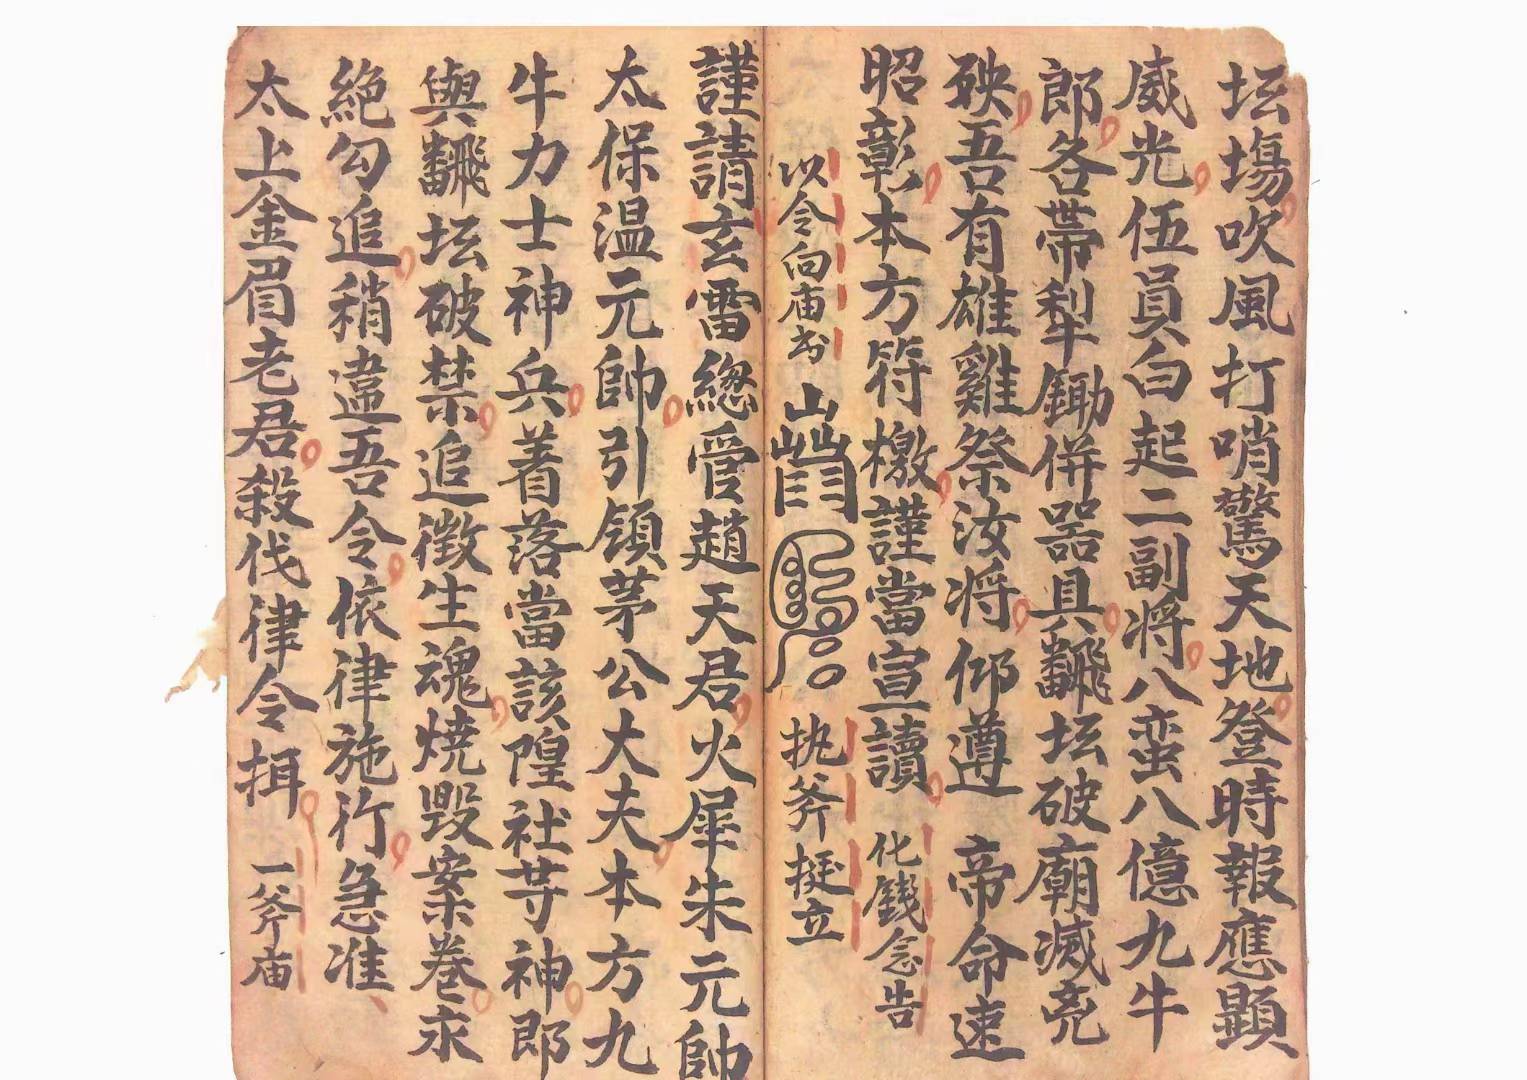 坛塲吹風打哨驚天地登時報應顕
威光伍員白起二副将八蛮八億九牛
郎各帶犁鋤併器具飜坛破廟滅
殃吾有雄雞祭汝将仰遵帝命速
昭彰本方符檄謹當宣讀化錢念告
以令向庙书
执斧挺立
謹請玄雷總管趙天君火犀朱元帥
太保温元帥引領茅公大夫本方九
牛力士神兵着落當該隍社等神郎
與飜坛破禁追徵生魂燒毁案卷永
絶勾追稍違吾令依律施行急准
太上金眉老君殺伐律令揖一斧庙